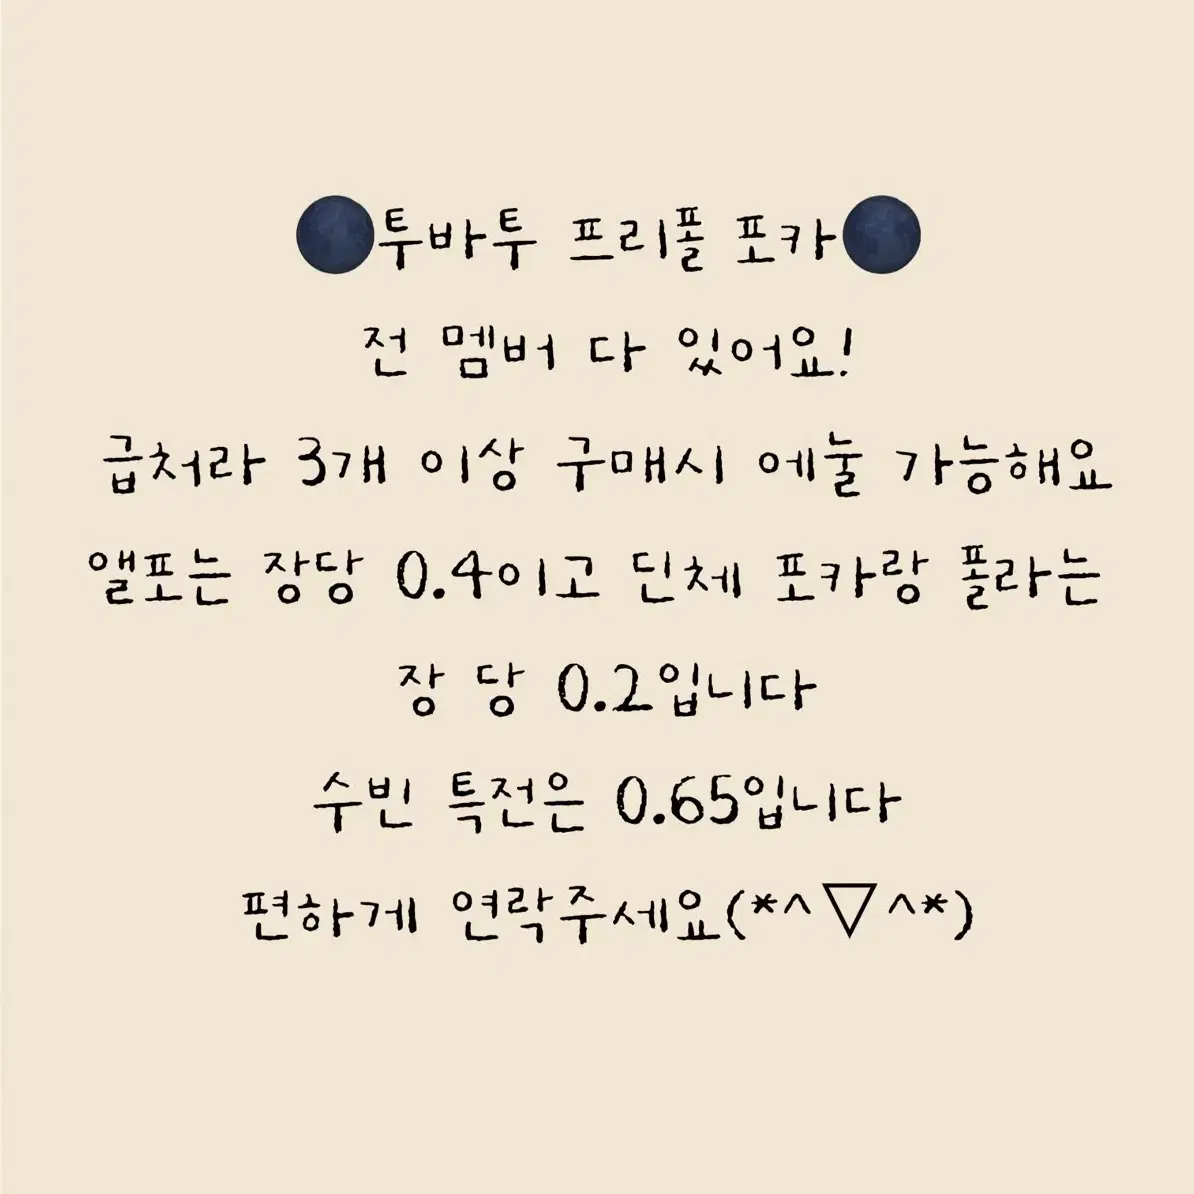 🌑투바투 프리폴 포카🌑
전 멤버 다 있어요!
급처라 3개 이상 구매시 에눌 가능해요
앨포는 장당 0.4이고 단체 포카랑 폴라는
장 당 0.2입니다
수빈 특전은 0.65입니다
편하게 연락주세요(*^▽^*)